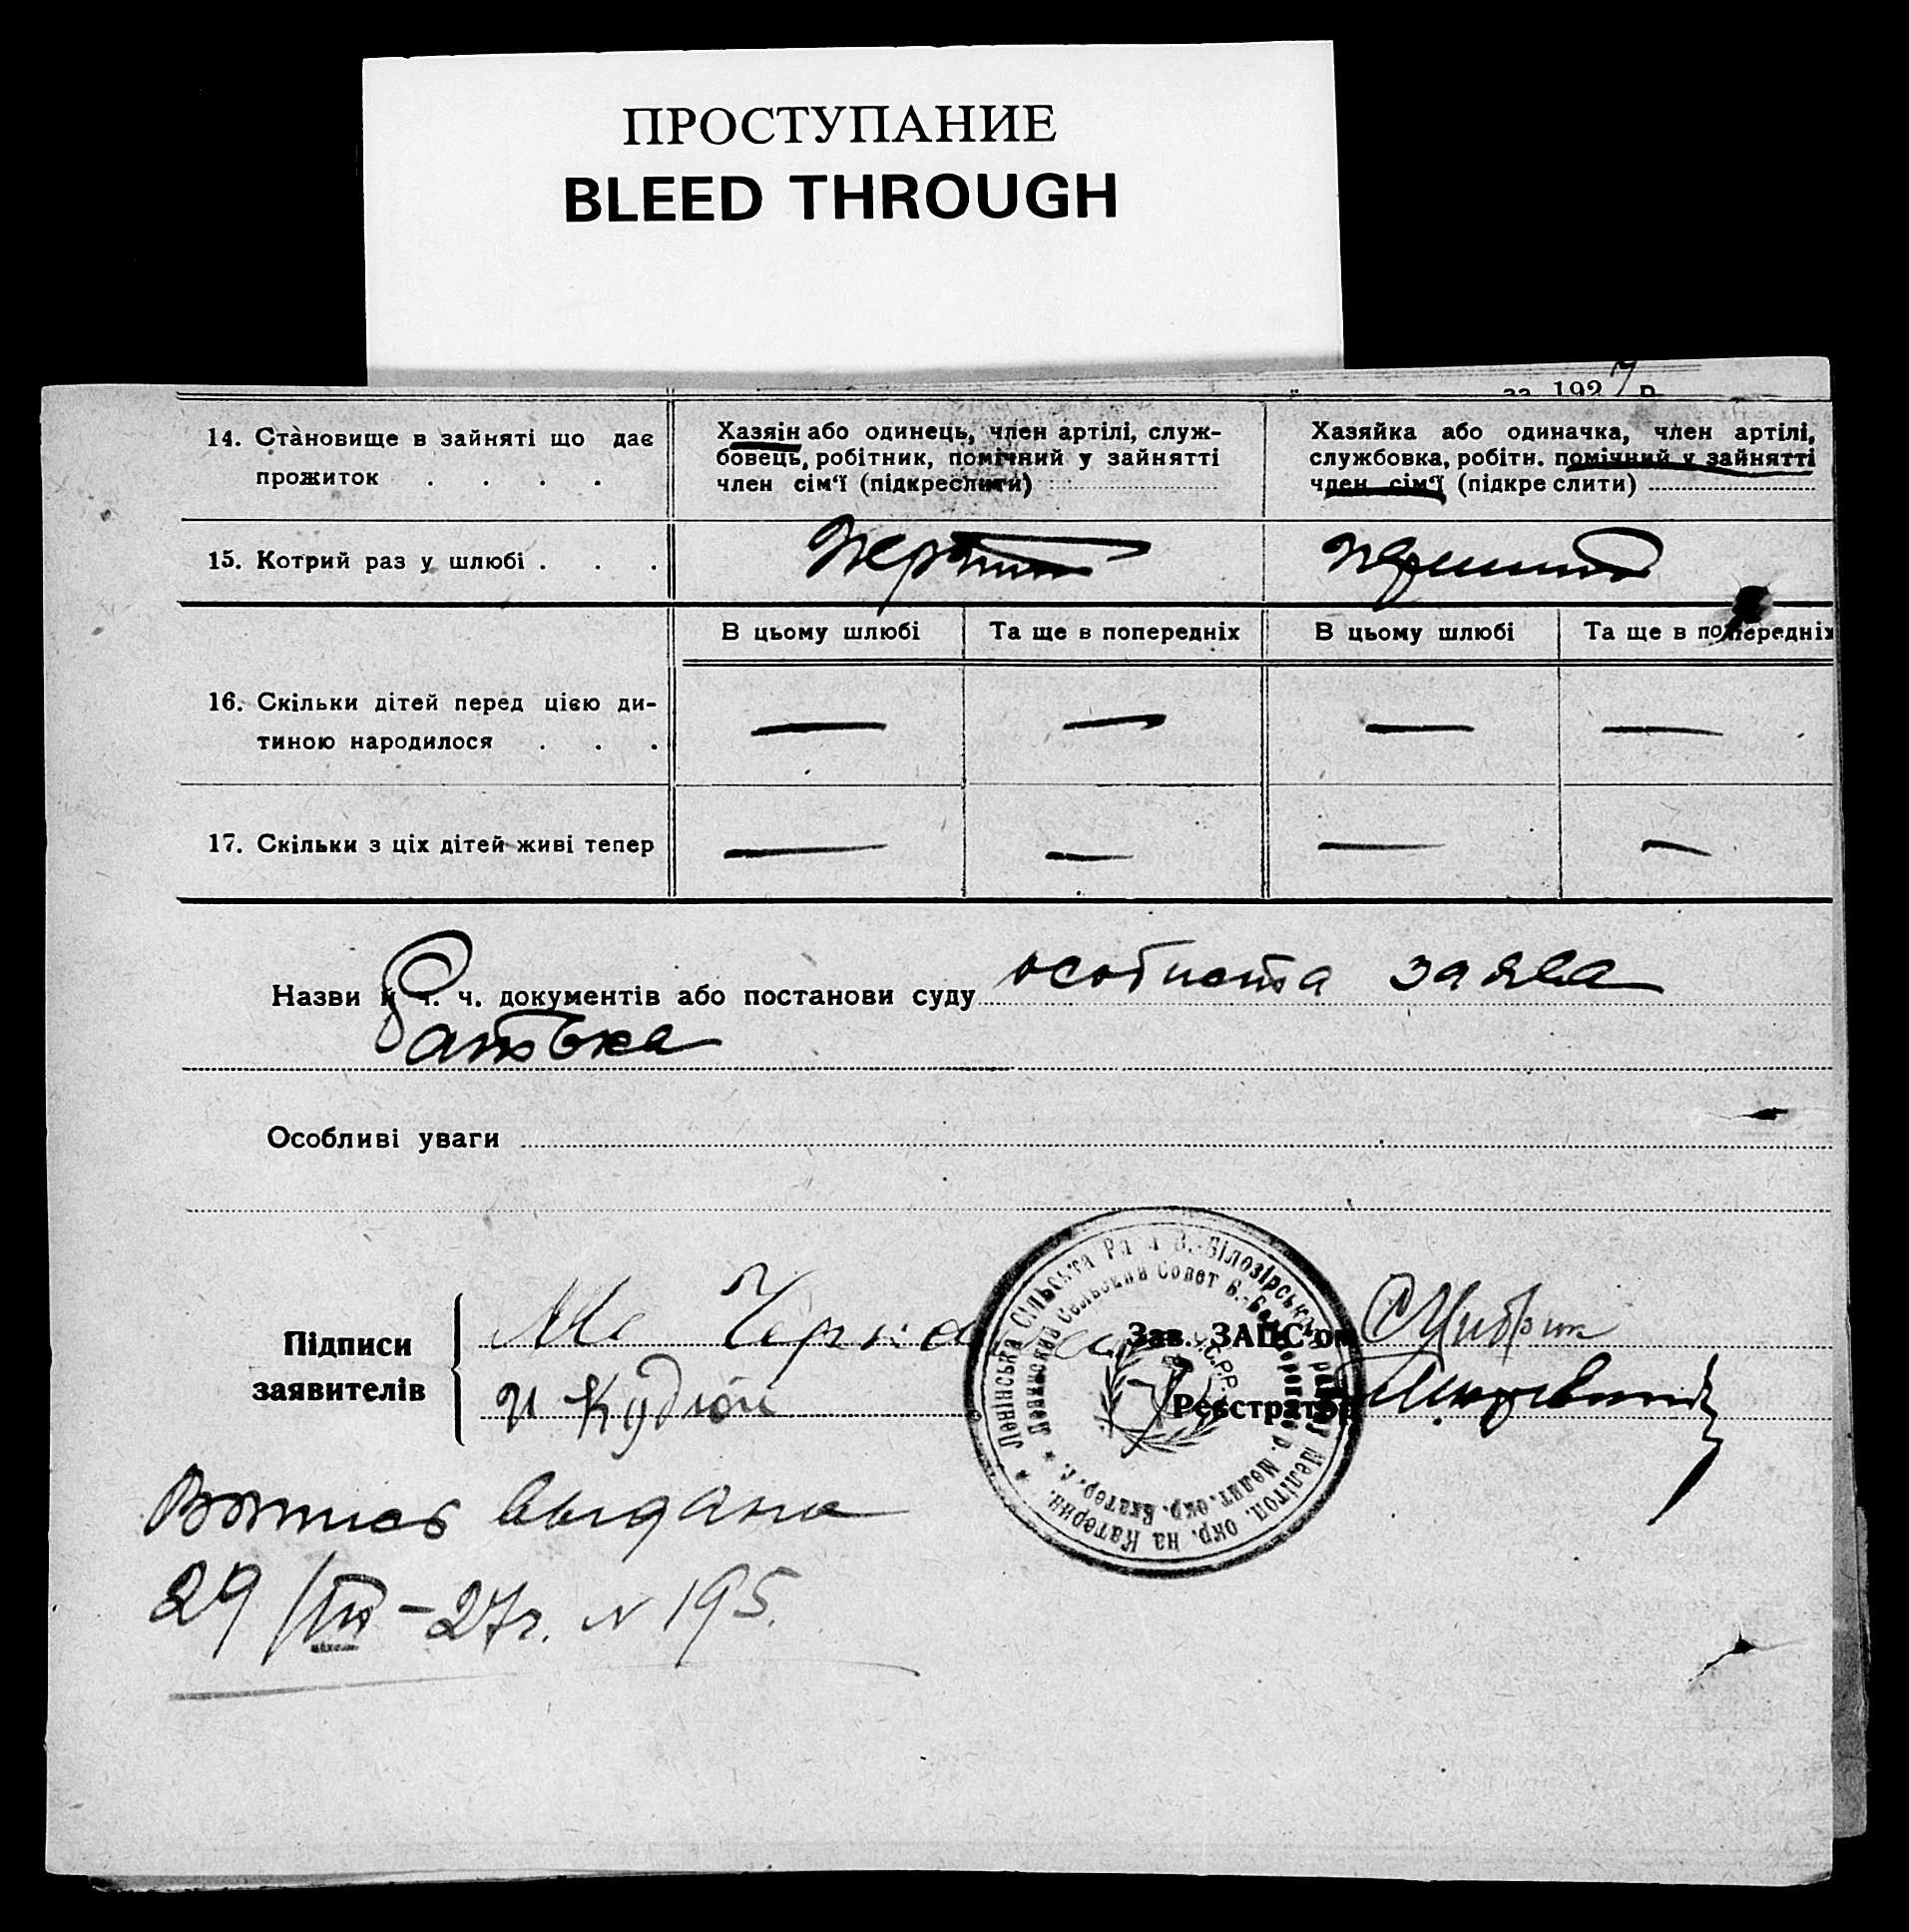 ПРОСТУПАНИЕ
BLEED THROUGH
за 1927 р.
14. Становище в зайняті що дає
прожиток . . . .
Хазяін або одинець, член артілі, служ-
бовець, робітник, помічний у зайнятті
член сім'ї (підкреслити)
Хазяйка або одиначка, член артілі,
службовка, робітн. помічний у зайнятті
член сім'ї (підкреслити)
15. Котрий раз у шлюбі . . .
первий
первий
В цьому шлюбі Та ще в попередніх В цьому шлюбі Та ще в попередніх
16. Скільки дітей перед цією ди-
тиною народилося . . .
— — — —
17. Скільки з ціх дітей живі тепер
— — — —
Назви й т. ч. документів або постанови суду особиста заява
батька
Особливі уваги
Підписи
заявителів
Зав. ЗАГС'ом
и Кудлай
Реєстратор
Ленінська Сільська Рада В.-Білозірського району Мелітоп. окр. на Катерин.
Ленинский Сельский Совет Б.-Белозерского р. Мелит. окр. Екатер. г.
У.С.Р.Р.
Выпись выдана
29/III-27г. N 195.